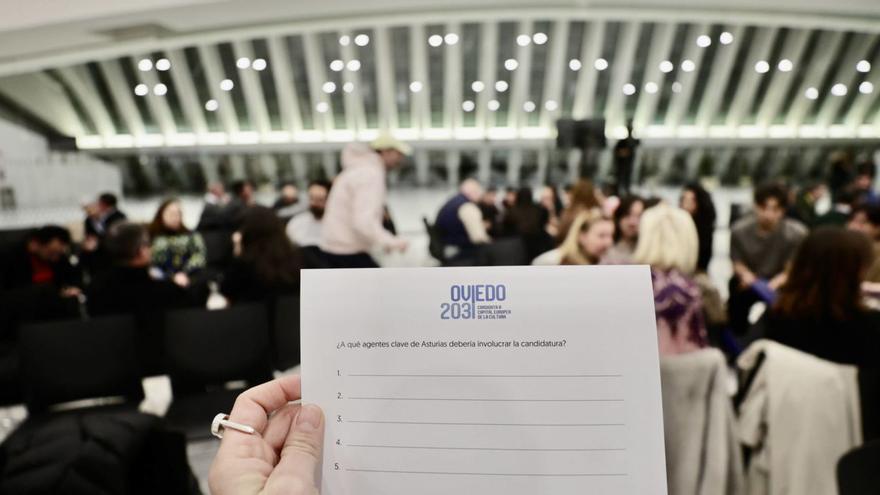 OVIEDO
2031
CANDIDATA A
CAPITAL EUROPEA
DE LA CULTURA
¿A qué agentes clave de Asturias debería involucrar la candidatura?
1.
2.
3.
4.
5.